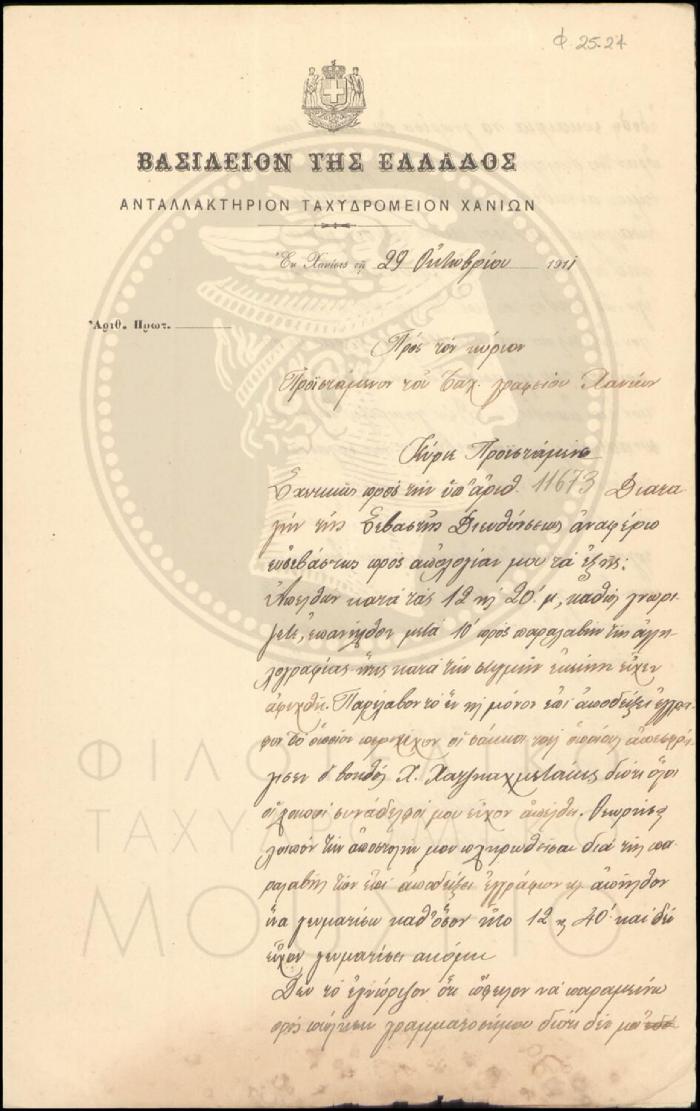 Φ 25.27
ΒΑΣΙΛΕΙΟΝ ΤΗΣ ΕΛΛΑΔΟΣ
ΑΝΤΑΛΛΑΚΤΗΡΙΟΝ ΤΑΧΥΔΡΟΜΕΙΟΝ ΧΑΝΙΩΝ
Ἐν Χανίοις τῇ 29 Ὀκτωβρίου 1911
Ἀριθ. Πρωτ.
Πρὸς τὸν κύριον
Προϊστάμενον τοῦ Ταχ. γραφείου Χανίων
Κύριε Προϊστάμενε
Σχετικῶς πρὸς τὴν ὑπ' ἀριθ. 11673 Διατα
γὴν τῆς Σεβαστῆς Διευθύνσεως ἀναφέρω
εὐσεβάστως πρὸς ἀπολογίαν μου τὰ ἑξῆς:
Ἀπελθὼν κατὰ τὰς 12 ϗ 20' μ, καθὼς γνωρί
ζετε, ἐπανῆλθον μετὰ 10' πρὸς παραλαβὴν τῆς ἀλλη
λογραφίας ἥτις κατὰ τὴν στιγμὴν ἐκείνη εἶχεν
ἀφιχθῆ. Παρέλαβον τὸ ἓν ϗ μόνον ἐπὶ ἀποδείξει ἔγγρα
φον τὸ ὁποῖον περιεῖχον οἱ σάκκοι τοὺς ὁποίους ἀπεσφρά
γισεν ὁ βοηθὸς Χ. διότι ὅλοι
οἱ λοιποὶ συνάδελφοί μου εἶχον ἀπέλθει. Θεωρήσας
λοιπὸν τὴν ἀποστολήν μου πληρωθεῖσαν διὰ τῆς πα
ραλαβῆς τῶν ἐπὶ ἀποδείξει ἐγγράφων ϗ ἀπῆλθον
ἵνα γευματίσω καθ' ὅσον ἦτο 12 ϗ 40' καὶ δὲν
εἶχον γευματίσει ἀκόμη
Δὲν τὸ ἐγνώριζον ὅτι ὤφειλον νὰ παραμείνω
πρὸς πώλησιν γραμματοσήμου διότι δὲν μοὶ
ΦΙΛΟΤΕΛΙΚΟ
ΤΑΧΥΔΡΟΜΙΚΟ
ΜΟΥΣΕΙΟ